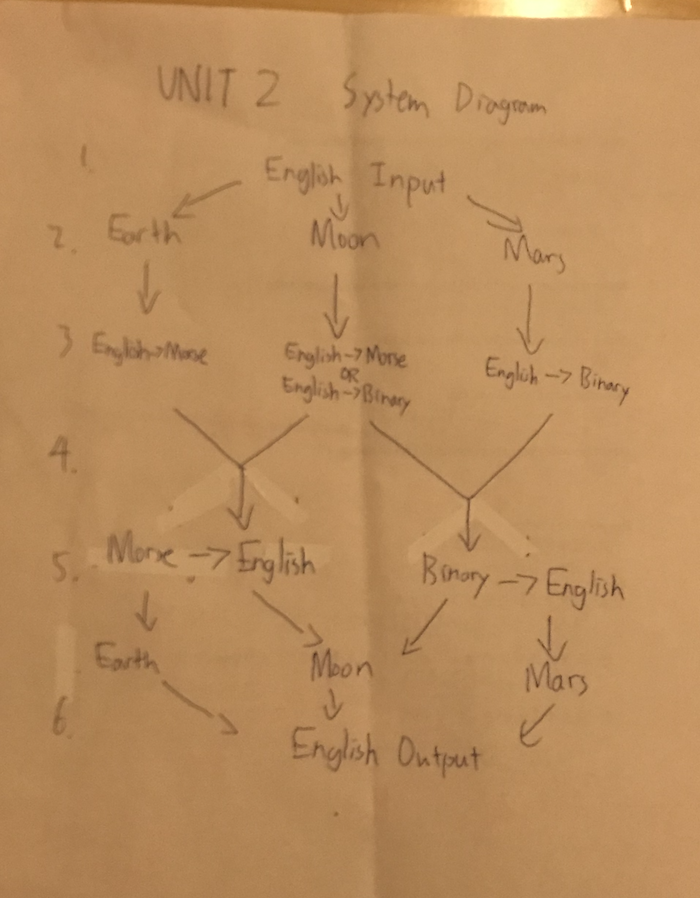 UNIT 2 System Diagram
1.
English Input
2. Earth Moon Mars
3 English->Morse English->Morse English -> Binary
OR
English->Binary
4.
5. Morse -> English Binary -> English
Earth Moon Mars
6.
English Output